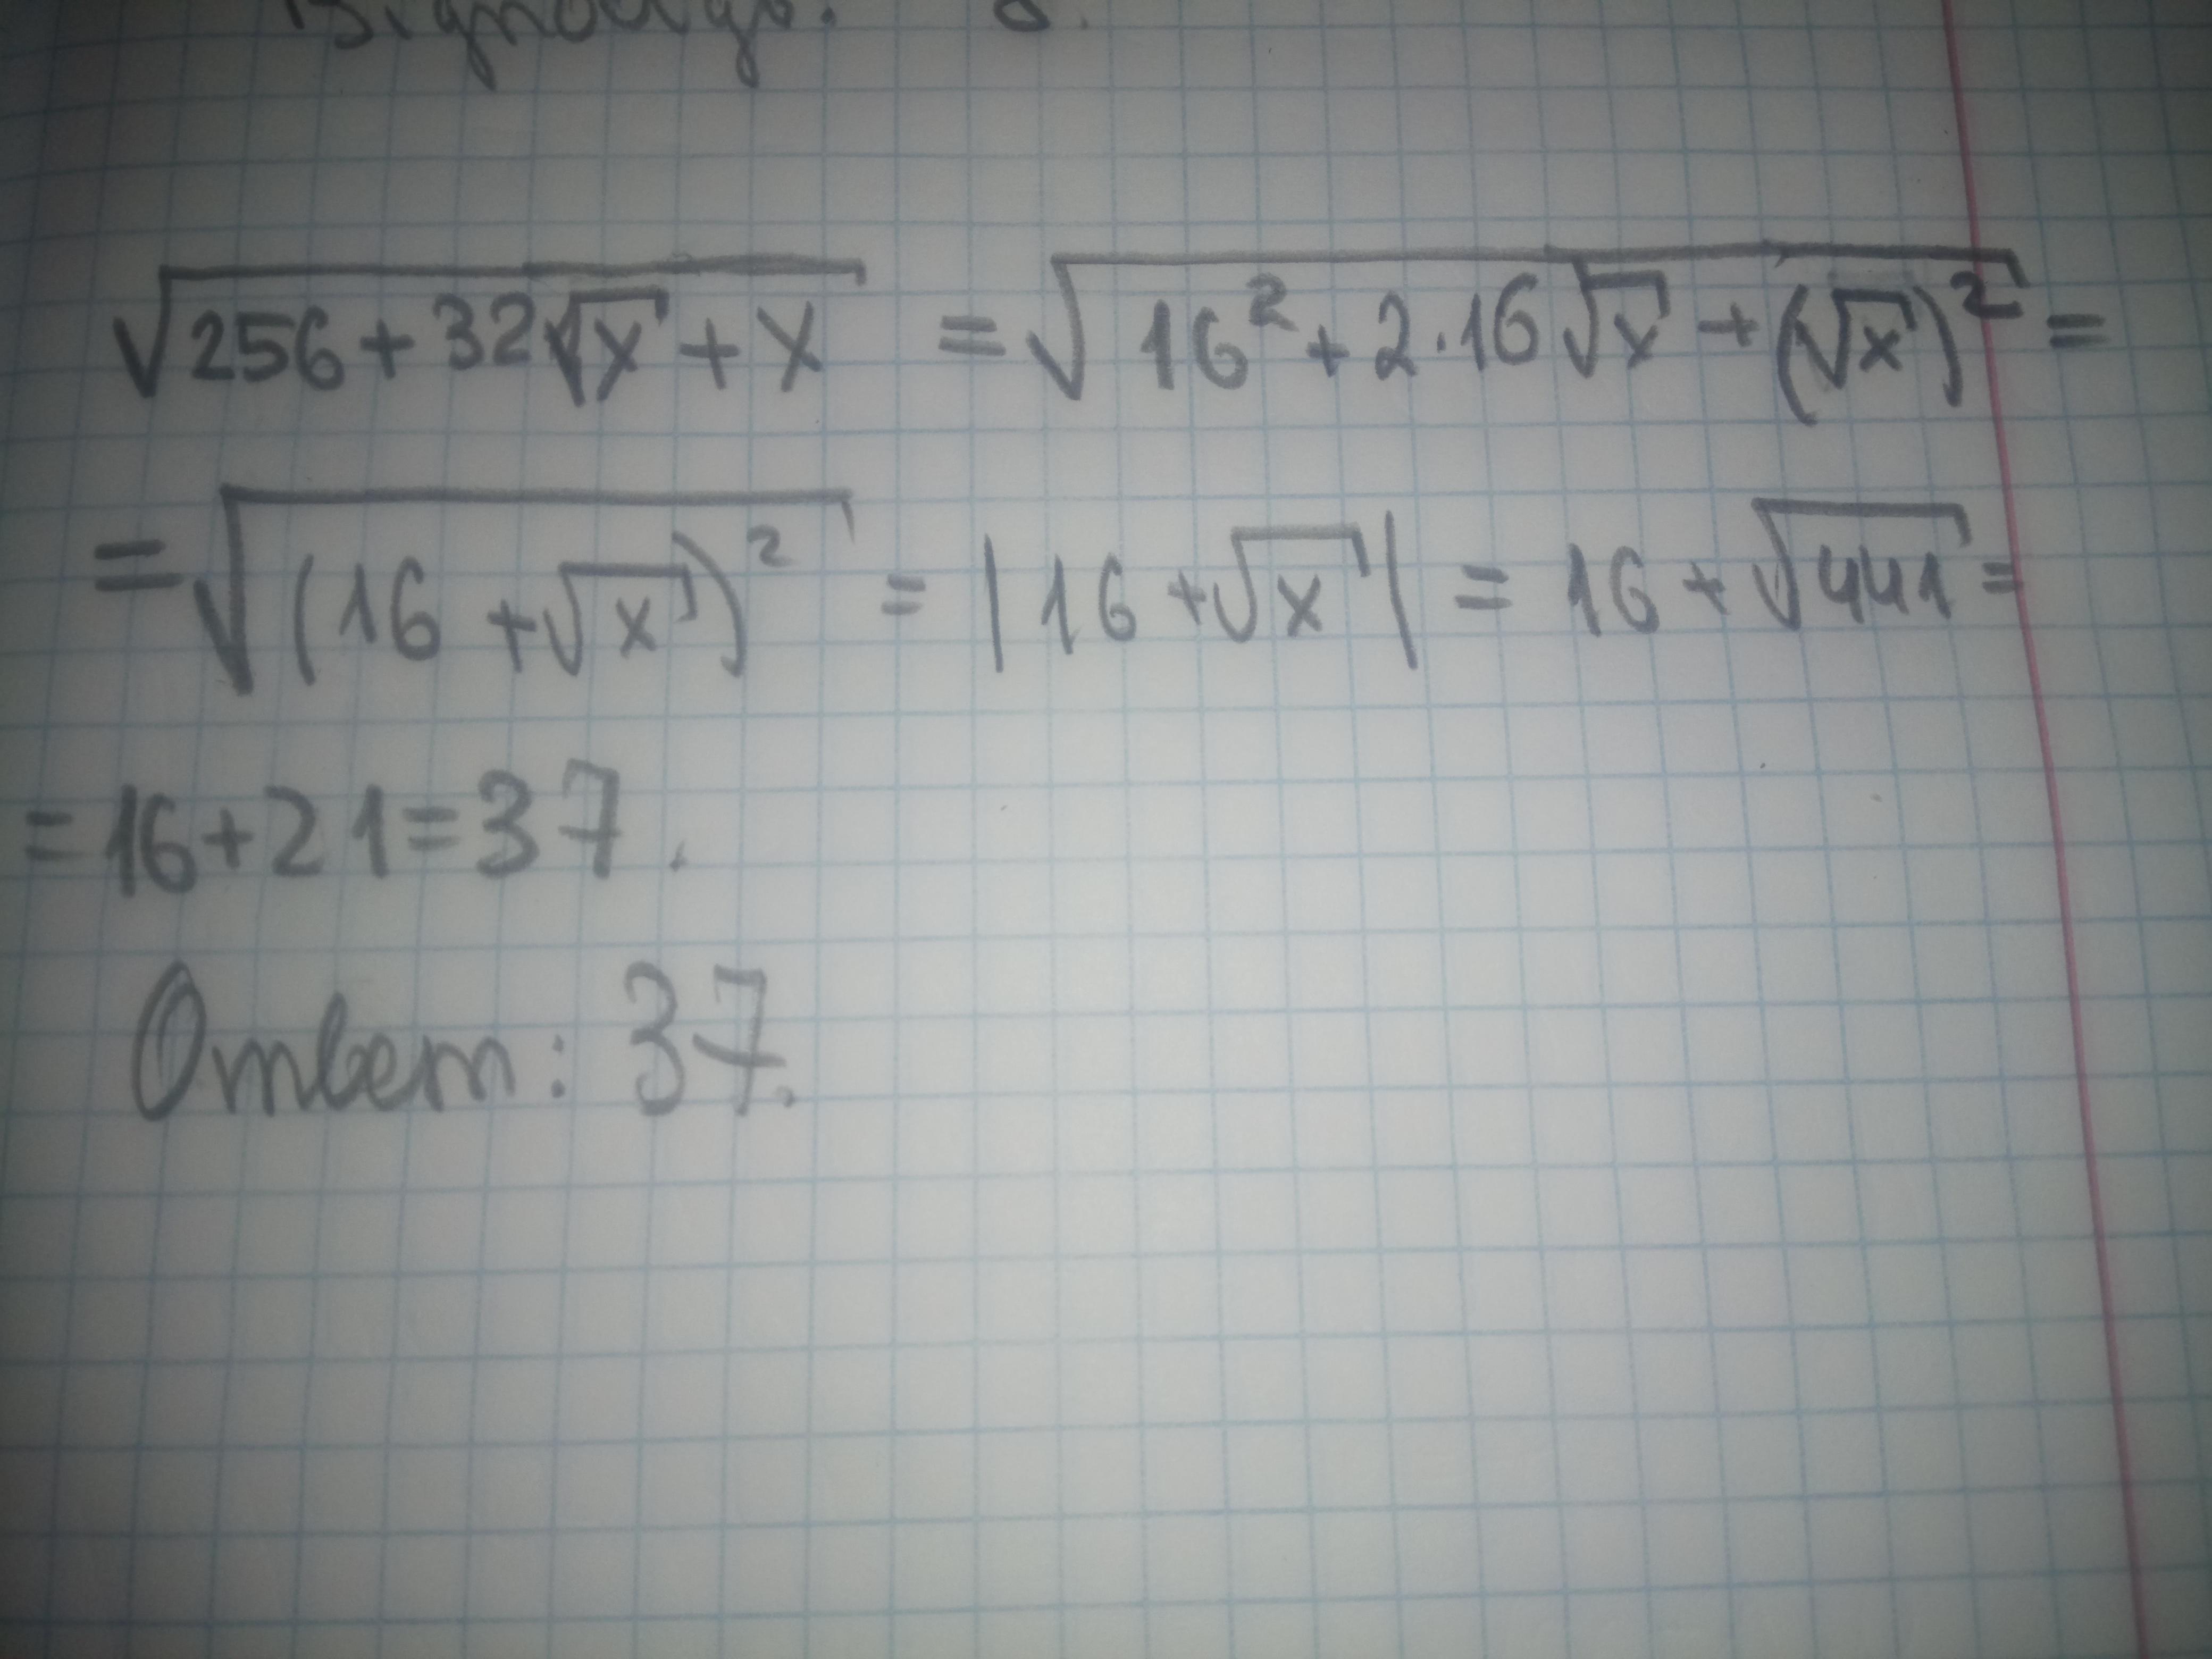 √256+32√x+x = √16²+2·16√x+(√x)² =
= √(16+√x)² = |16+√x| = 16+√441 =
= 16+21=37.
Ответ: 37.